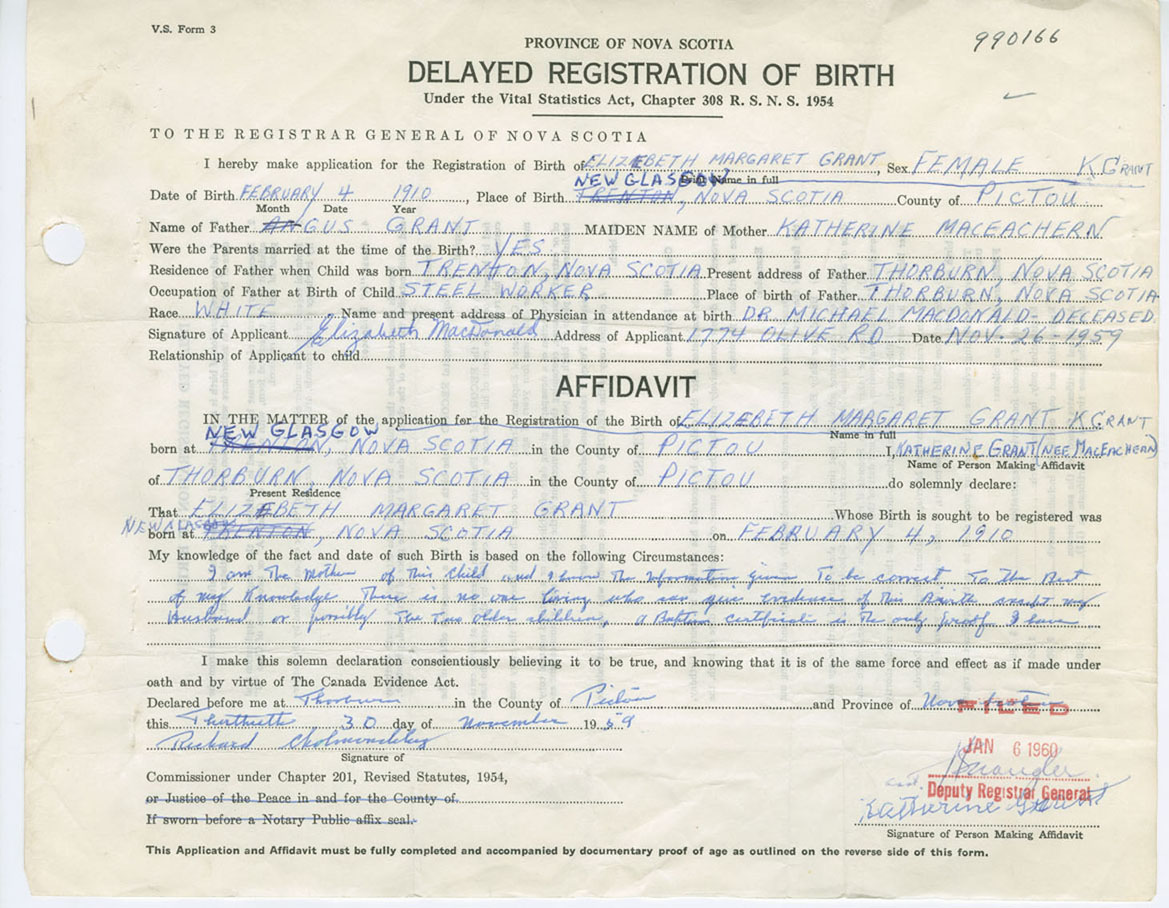 V.S. Form 3
990166
PROVINCE OF NOVA SCOTIA
DELAYED REGISTRATION OF BIRTH
Under the Vital Statistics Act, Chapter 308 R. S. N. S. 1954
TO THE REGISTRAR GENERAL OF NOVA SCOTIA
I hereby make application for the Registration of Birth of ELIZEBETH MARGARET GRANT, Sex FEMALE K GRANT
NEW GLASGOW Print Name in full
Date of Birth FEBRUARY 4 1910, Place of Birth TRENTON, NOVA SCOTIA County of PICTOU
Month Date Year
Name of Father ANGUS GRANT MAIDEN NAME of Mother KATHERINE MACEACHERN
Were the Parents married at the time of the Birth? YES
Residence of Father when Child was born TRENTON, NOVA SCOTIA Present address of Father THORBURN, NOVA SCOTIA
Occupation of Father at Birth of Child STEEL WORKER Place of birth of Father THORBURN, NOVA SCOTIA
Race WHITE Name and present address of Physician in attendance at birth DR MICHAEL MACDONALD - DECEASED
Signature of Applicant Elizabeth MacDonald Address of Applicant 1774 OLIVE RD Date NOV-26-1959
Relationship of Applicant to child
AFFIDAVIT
IN THE MATTER of the application for the Registration of the Birth of ELIZEBETH MARGARET GRANT K GRANT
NEW GLASGOW Name in full
born at TRENTON, NOVA SCOTIA in the County of PICTOU I, KATHERINE GRANT (NEE MACEACHERN)
Name of Person Making Affidavit
of THORBURN, NOVA SCOTIA in the County of PICTOU do solemnly declare:
Present Residence
That ELIZEBETH MARGARET GRANT Whose Birth is sought to be registered was
NEW GLASGOW
born at TRENTON, NOVA SCOTIA on FEBRUARY 4, 1910
My knowledge of the fact and date of such Birth is based on the following Circumstances:
I am the Mother of this child and I know the information given to be correct to the Best
of my Knowledge There is no one living who can give evidence of this Birth except my
Husband or possibly the two older children, a Baptism certificate is the only proof I have
I make this solemn declaration conscientiously believing it to be true, and knowing that it is of the same force and effect as if made under
oath and by virtue of The Canada Evidence Act.
Declared before me at Thorburn in the County of Pictou and Province of Nova Scotia
FILED
this Thirtieth 30 day of November 1959
Richard Cholmondeley
Signature of
JAN 6 1960
Commissioner under Chapter 201, Revised Statutes, 1954,
or Justice of the Peace in and for the County of
Deputy Registrar General
Katherine Grant
If sworn before a Notary Public affix seal.
Signature of Person Making Affidavit
This Application and Affidavit must be fully completed and accompanied by documentary proof of age as outlined on the reverse side of this form.